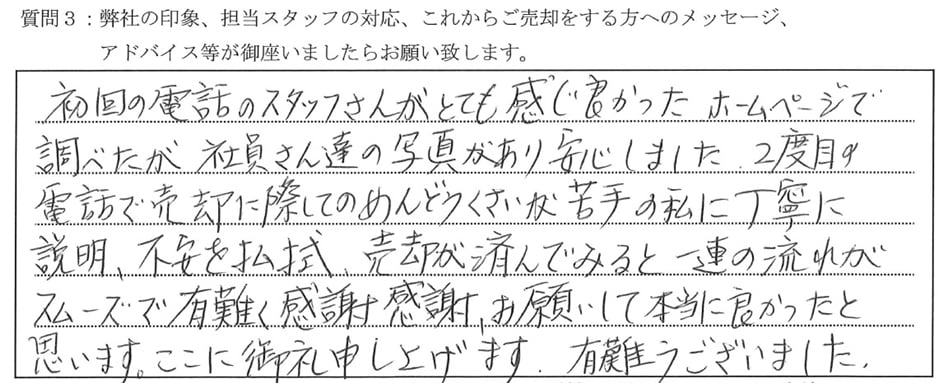 質問３：弊社の印象、担当スタッフの対応、これからご売却をする方へのメッセージ、
アドバイス等が御座いましたらお願い致します。
初回の電話のスタッフさんがとても感じ良かった ホームページで
調べたが 社員さん達の写真があり安心しました. 2度目の
電話で売却に際してのめんどうくさいが苦手の私に丁寧に
説明、不安を払拭、売却が済んでみると一連の流れが
スムーズで有難く感謝感謝、お願いして本当に良かったと
思います。ここに御礼申し上げます. 有難うございました.